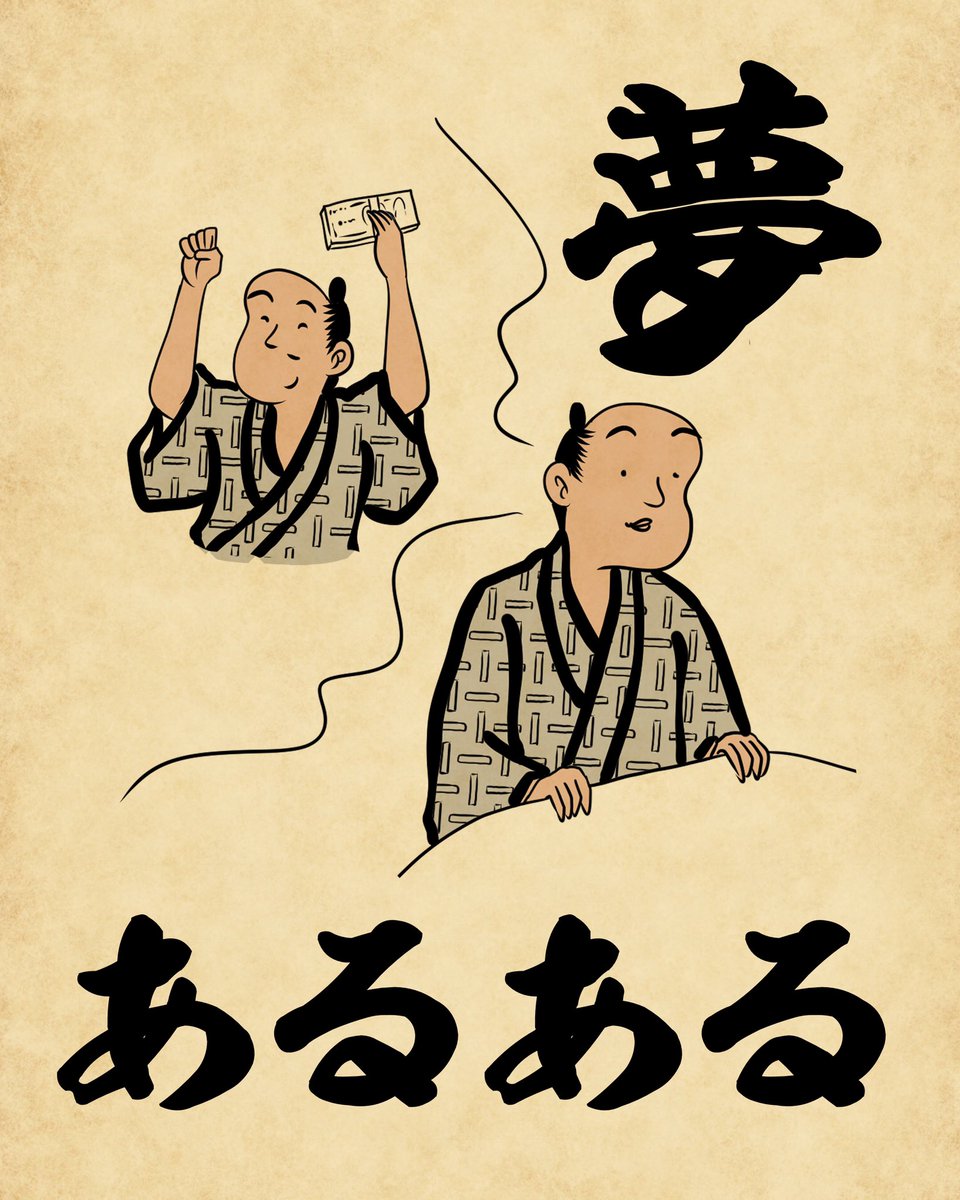 夢
あるある